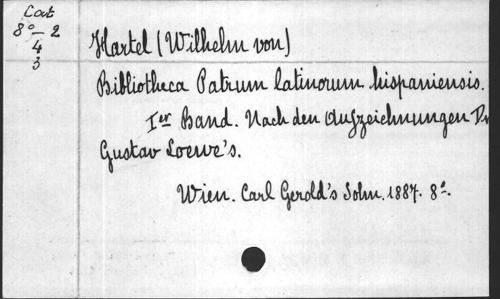 Cat
8° - 2
4
3
Hartel (Wilhelm von)
Bibliotheca Patrum latinorum hispaniensis.
Ier Band. Nach den Aufzeichnungen Dr
Gustav Loewe's.
Wien. Carl Gerold's Sohn. 1887. 8°.